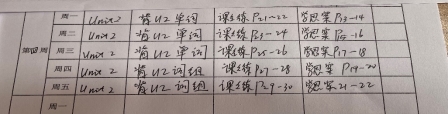 周一 Unit 2 背U2单词 课课练P21-22 学思案P13-14
周二 Unit 2 背U2单词 课课练P23-24 学思案P15-16
第 周 周三 Unit 2 背U2单词 课课练P25-26 学思案P17-18
周四 Unit 2 背U2词组 课课练P27-28 学思案P19-20
周五 Unit 2 背U2词组 课课练P29-30 学思案21-22
周一